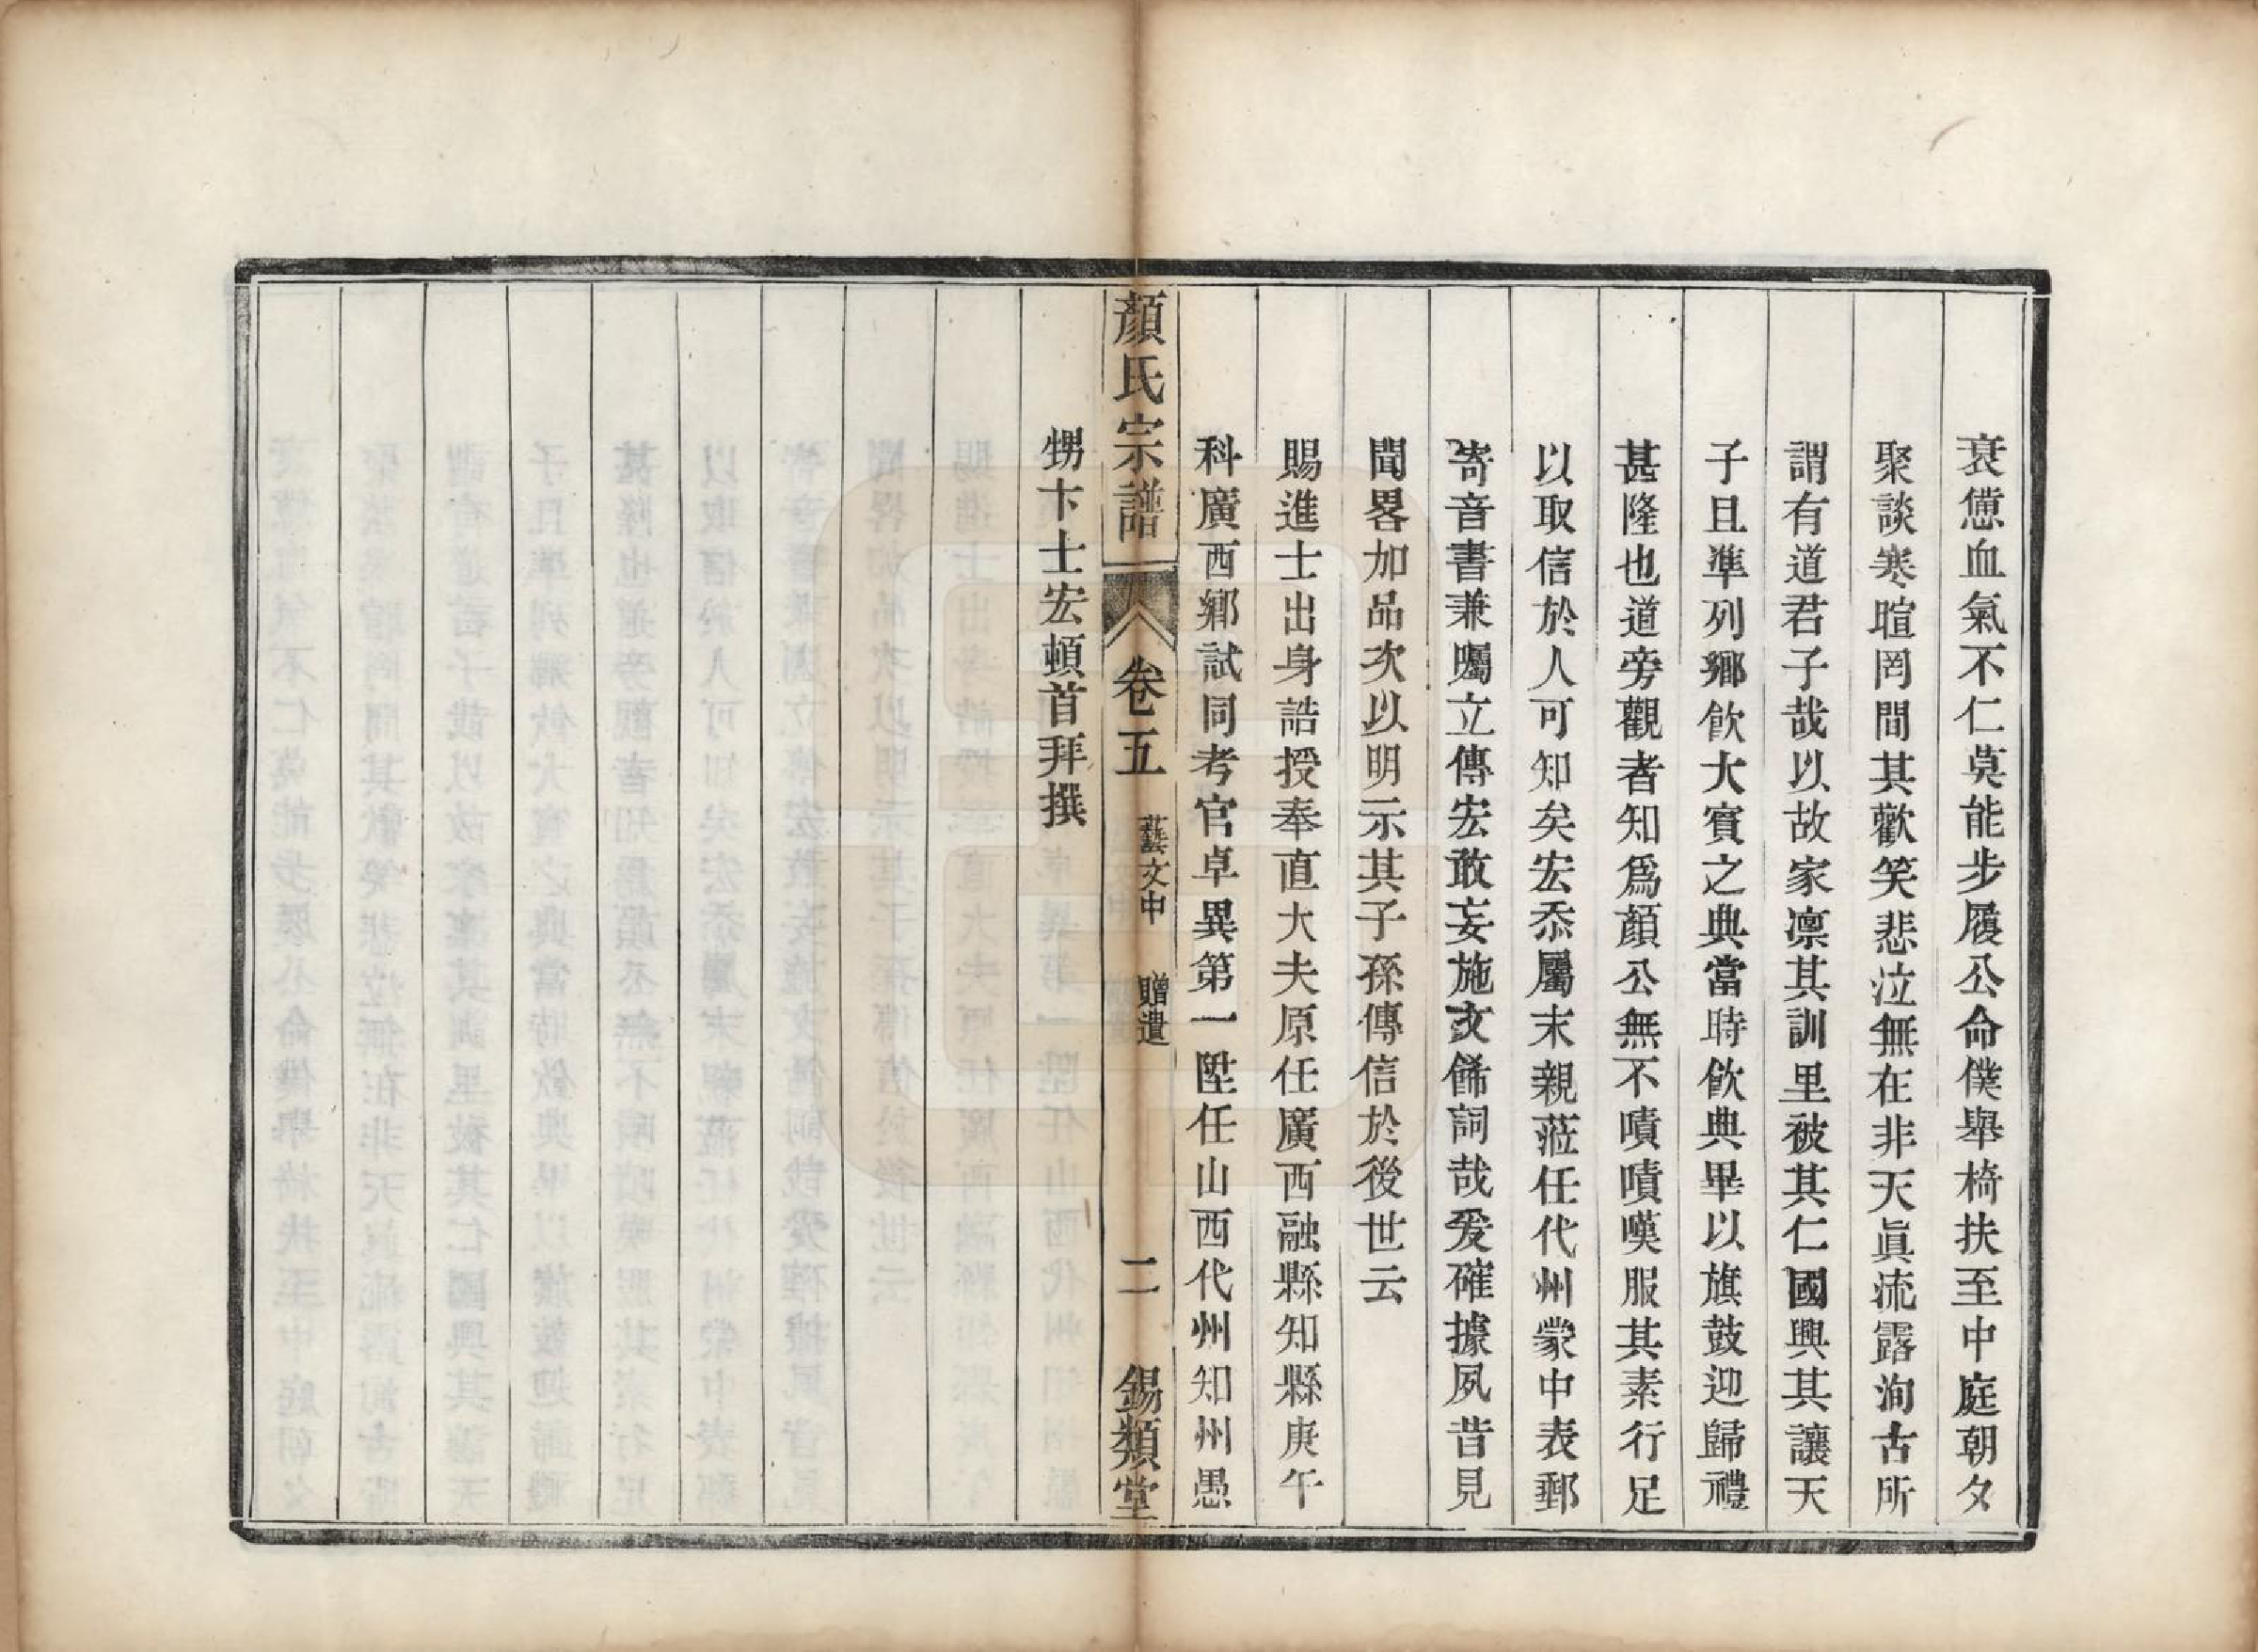 衰憊血氣不仁莫能步履公命僕舉椅扶至中庭朝夕
聚談寒暄罔間其歡笑悲泣無在非天眞流露洵古所
謂有道君子哉以故家凛其訓里被其仁國興其讓天
子且準列鄉飲大賓之典當時飲典畢以旗鼓迎歸禮
甚隆也道旁觀者知爲顏公無不嘖嘖嘆服其素行足
以取信於人可知矣宏忝屬末親蒞任代州蒙中表郵
寄音書兼囑立傳宏敢妄施文餙詞哉爰確據夙昔見
聞畧加品次以明示其子孫傳信於後世云
賜進士出身誥授奉直大夫原任廣西融縣知縣庚午
科廣西鄉試同考官卓異第一陞任山西代州知州愚
顏氏宗譜 卷五 藝文中 贈遺 二 錫類堂
甥卞士宏頓首拜撰